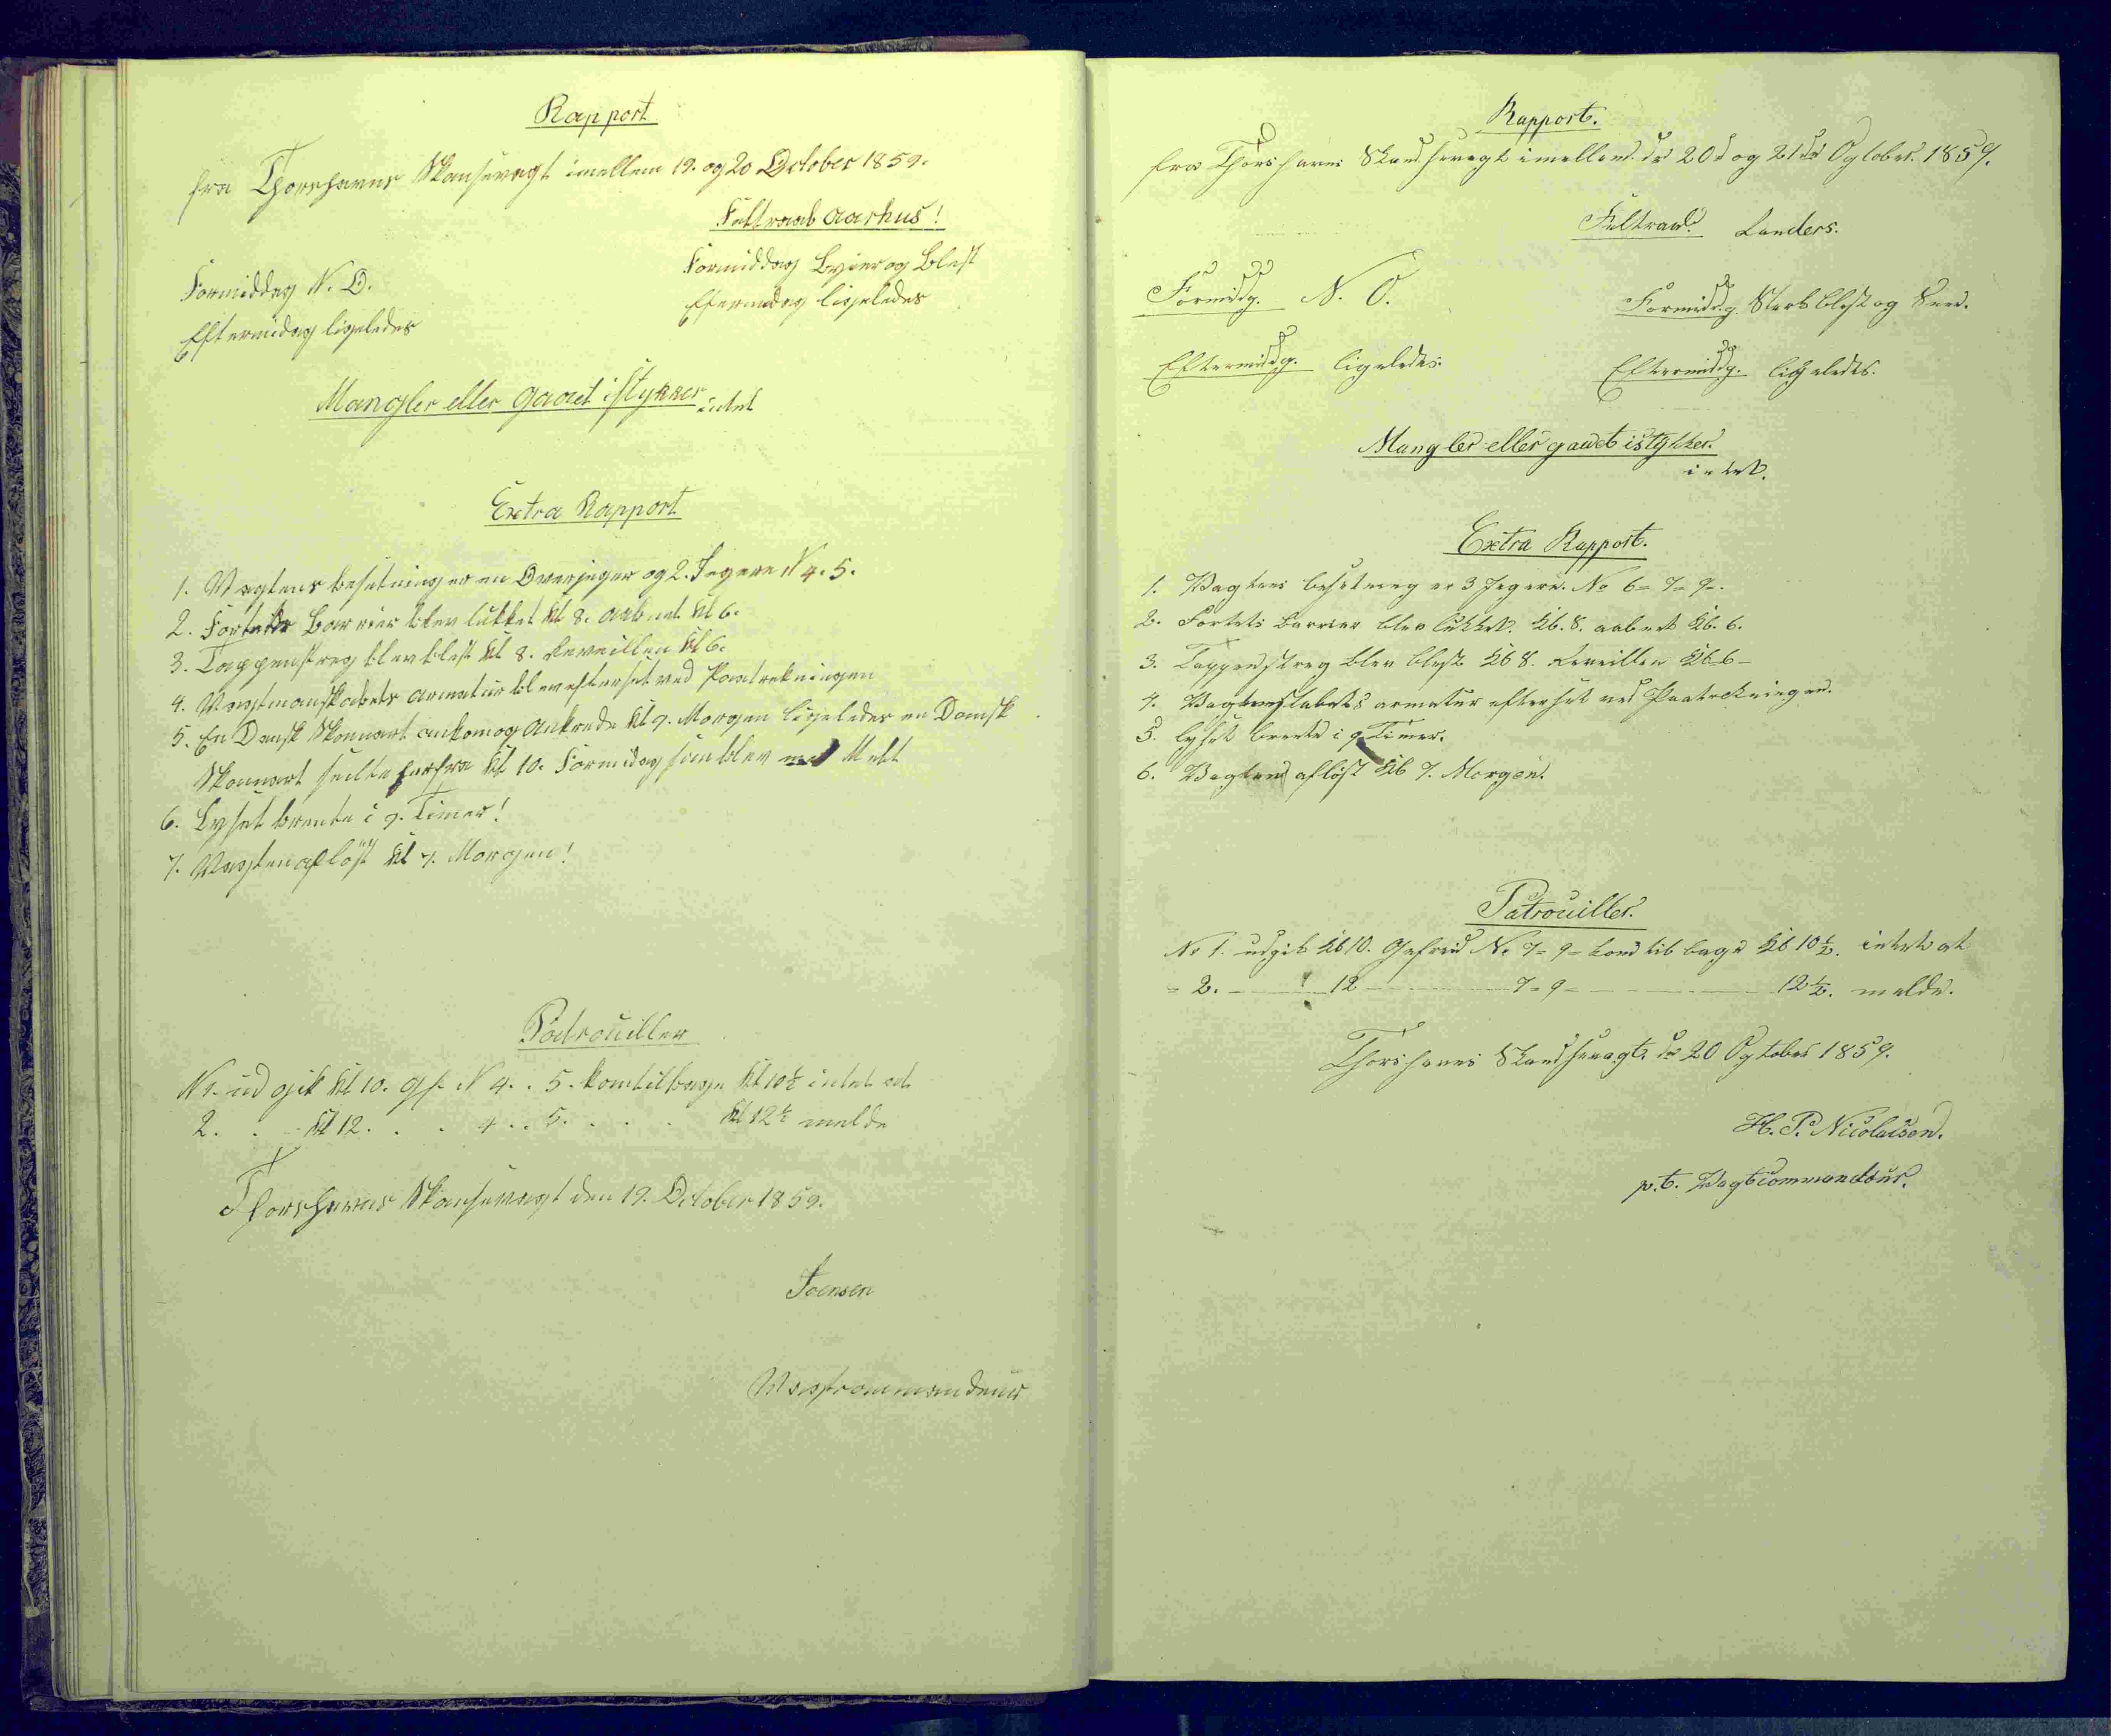 Rapport
fra Thorshavns Skansevagt imellem 19. og 20 October 1859.
Feltraab Aarhus!
Formiddag N. O.
Eftermidag ligeledes
Formiddag Byier og Blest
Eftermidag ligeledes
Mangler eller gaaet istykker intet
Extra Rapport
1. Vagtens besetning er en Overjeger og 2. Jegere N 4. 5.
2. Fortets Barrier blev lukket Kl 8. aabnet Kl 6.
3. Tappenstreg blev blest Kl 8. Reveillen Kl 6.
4. Vagtmanskabets armatur blev efterset ved Paatrekningen
5. En Dansk Skonnart ankom og Ankrede Kl 9. Morgen ligeledes en Dansk
Skonnart seilte herfra Kl 10. Formidag som blev Melt
6. Lyset brente i 9. Timer!
7. Vagten aflöst Kl 7. Morgen!
Patrouiller
N 1. udgik Kl 10. Gf. N 4. . 5. kom tilbage Kl 10½ intet at
2. . Kl 12. . . 4 . . 5. . . . . Kl 12½ melde
Thorshavns Skansevagt den 19. October 1859.
Joensen
Vagtcommandeur
Rapport.
fra Thorshavns Skandsevagt imellem d. 20d og 21de Ogtober. 1859.
Feltraab. Randers.
Formiddg. N. O.
Eftermiddg. ligeledes.
Formiddg. Sterk blest og Snee.
Eftermiddg. ligeledes.
Mangler eller gaaet istykker.
intet.
Extra Rapport.
1. Vagtens besetning er 3 Jegere. No 6 = 7 = 9 -.
2. Fortets Barrier blev lukket. Kl. 8. aabnet Kl. 6.
3. Tappenstreg blev blest Kl 8. Reveillen Kl 6 -
4. armatur efterset ved Paatrekningen.
5. lyset brente i 9 Timer.
6. Vagten aflöst Kl 7. Morgen.
Patrouiller.
No 1. udgik Kl 10. Gefreid No 7 = 9 = kom tilbage Kl 10½. intet at
= 2. 12 7 = 9 = 12½. melde.
Thorshavns Skandsevagt. d. 20 Ogtober 1859.
H. P. Nicolaisen.
p. t. Vagtcommandeur.